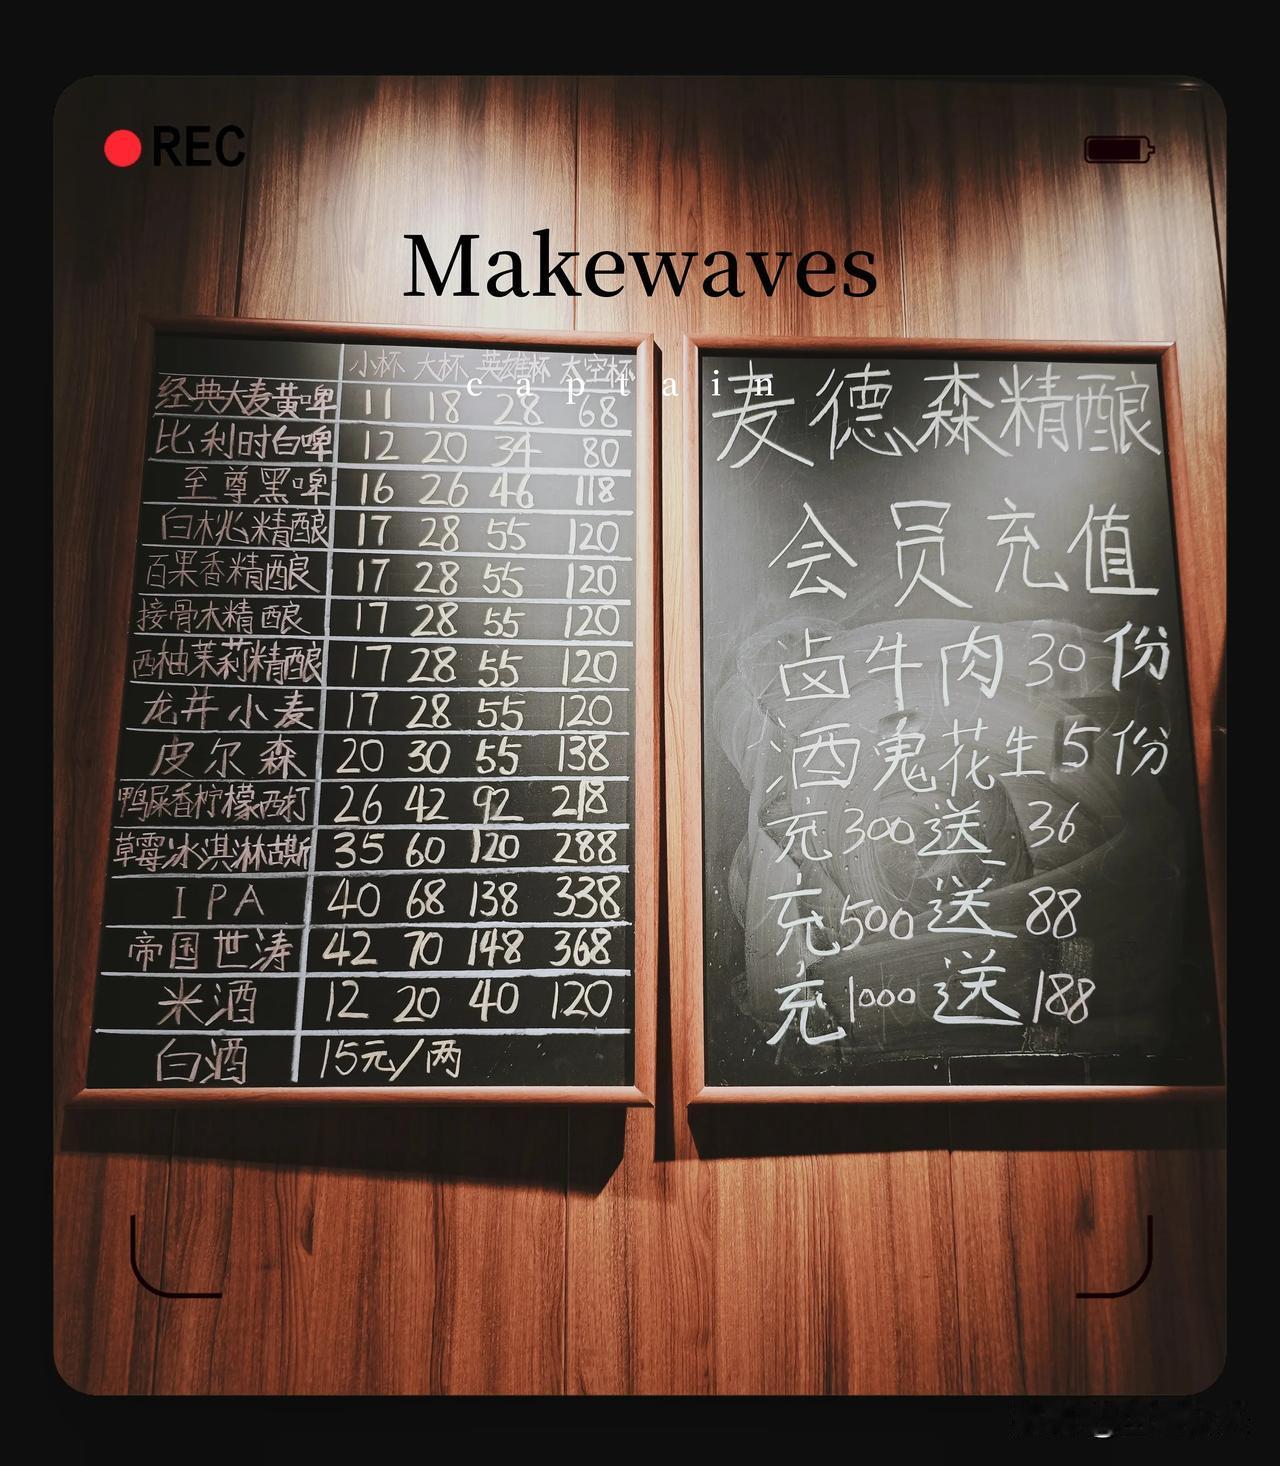 REC
Makewaves
captain
小杯 大杯 英雄杯 太空杯
经典大麦黄啤 11 18 28 68
比利时白啤 12 20 34 80
至尊黑啤 16 26 46 118
白桃精酿 17 28 55 120
百果香精酿 17 28 55 120
接骨木精酿 17 28 55 120
西柚茉莉精酿 17 28 55 120
龙井小麦 17 28 55 120
皮尔森 20 30 55 138
鸭屎香柠檬西打 26 42 92 218
草莓冰淇淋古斯 35 60 120 288
IPA 40 68 138 338
帝国世涛 42 70 148 368
米酒 12 20 40 120
白酒 15元/两
麦德森精酿
会员充值
卤牛肉30份
酒鬼花生5份
充300送36
充500送88
充1000送188